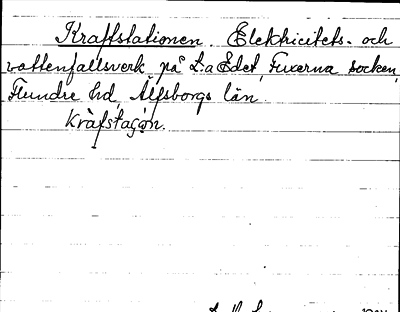 Kraftstationen. Elektricitets- och
vattenfallsverk på L:a Edet, Fuxerna socken,
Flundre hd, Älfsborgs län.
Kràfstaçón.